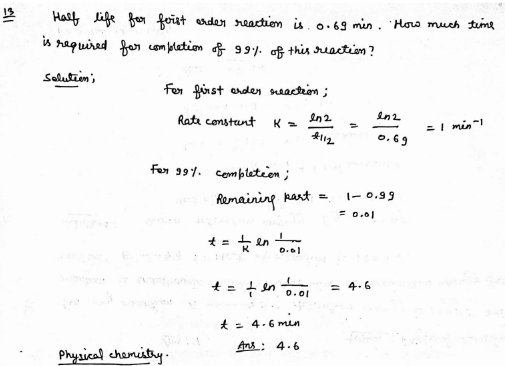 13 Half life for first order reaction is 0.69 min. How much time
is required for completion of 99% of this reaction?
Solution;
For first order reaction;
Rate constant K = ln2/t1/2 = ln2/0.69 = 1 min⁻¹
For 99% completion;
Remaining part = 1-0.99
= 0.01
t = 1/K ln 1/0.01
t = 1/1 ln 1/0.01 = 4.6
t = 4.6 min
Ans: 4.6
Physical chemistry.